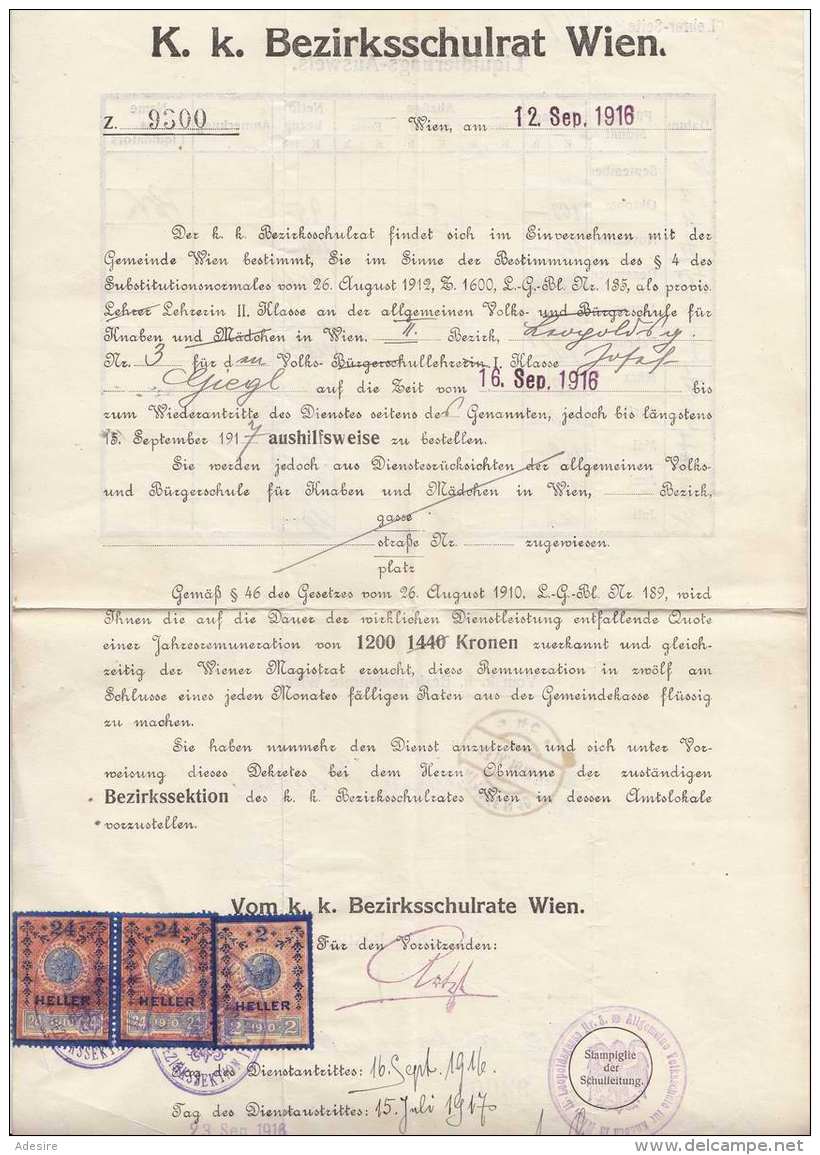 K. k. Bezirksschulrat Wien.
Z. 9300 Wien, am 12. Sep. 1916
Der k. k. Bezirksschulrat findet sich im Einvernehmen mit der
Gemeinde Wien bestimmt, Sie im Sinne der Bestimmungen des § 4 des
Substitutionsnormales vom 26. August 1912, Z. 1600, L.-G.-Bl. Nr. 185, als provis.
Lehrer Lehrerin II. Klasse an der allgemeinen Volks- und Bürgerschule für
Knaben und Mädchen in Wien, II. Bezirk, Leopoldsg.
Nr. 3 für den Volks- Bürgerschullehrerin I. Klasse Josef
Giegl auf die Zeit vom 16. Sep. 1916 bis
zum Wiederantritte des Dienstes seitens des Genannten, jedoch bis längstens
15. September 1917 aushilfsweise zu bestellen.
Sie werden jedoch aus Dienstesrücksichten der allgemeinen Volks-
und Bürgerschule für Knaben und Mädchen in Wien, Bezirk,
gasse
straße Nr. zugewiesen.
platz
Gemäß § 46 des Gesetzes vom 26. August 1910, L.-G.-Bl. Nr. 189, wird
Ihnen die auf die Dauer der wirklichen Dienstleistung entfallende Quote
einer Jahresremuneration von 1200 1440 Kronen zuerkannt und gleich-
zeitig der Wiener Magistrat ersucht, diese Remuneration in zwölf am
Schlusse eines jeden Monates fälligen Raten aus der Gemeindekasse flüssig
zu machen.
Sie haben nunmehr den Dienst anzutreten und sich unter Vor-
weisung dieses Dekretes bei dem Herrn Obmanne der zuständigen
Bezirkssektion des k. k. Bezirksschulrates Wien in dessen Amtslokale
vorzustellen.
Vom k. k. Bezirksschulrate Wien.
Für den Vorsitzenden:
24 24 2
HELLER HELLER HELLER
24 1910 24 24 1910 24 2 1910 2
BEZIRKSSEKTION
Stampiglie
der
Schulleitung.
Tag des Dienstantrittes: 16. Sept. 1916.
Tag des Dienstaustrittes: 15. Juli 1917
23 Sep. 1916
Adesire
delcampe.net